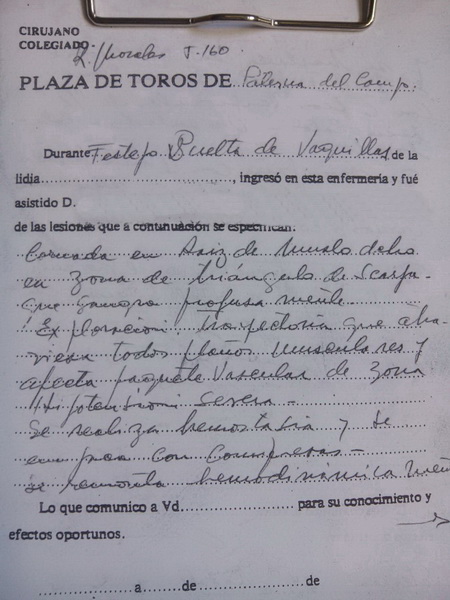 CIRUJANO
COLEGIADO- Morales J-160.
PLAZA DE TOROS DE Paterna del Campo.
Durante Festejo Suelta de Vaquillas de la
lidia, ingresó en esta enfermería y fué
asistido D.
de las lesiones que a continuación se especifican:
Cornada en Raiz de Muslo dcho
en zona de triángulo de Scarpa
que sangra profusamente
Exploracion: trayectoria que atra-
viesa todos planos musculares y
afecta paquete Vascular de zona
Hipotension severa -
Se realiza hemostasia y se
con compresas -
se hemodinámica
Lo que comunico a Vd. para su conocimiento y
efectos oportunos.
a de de